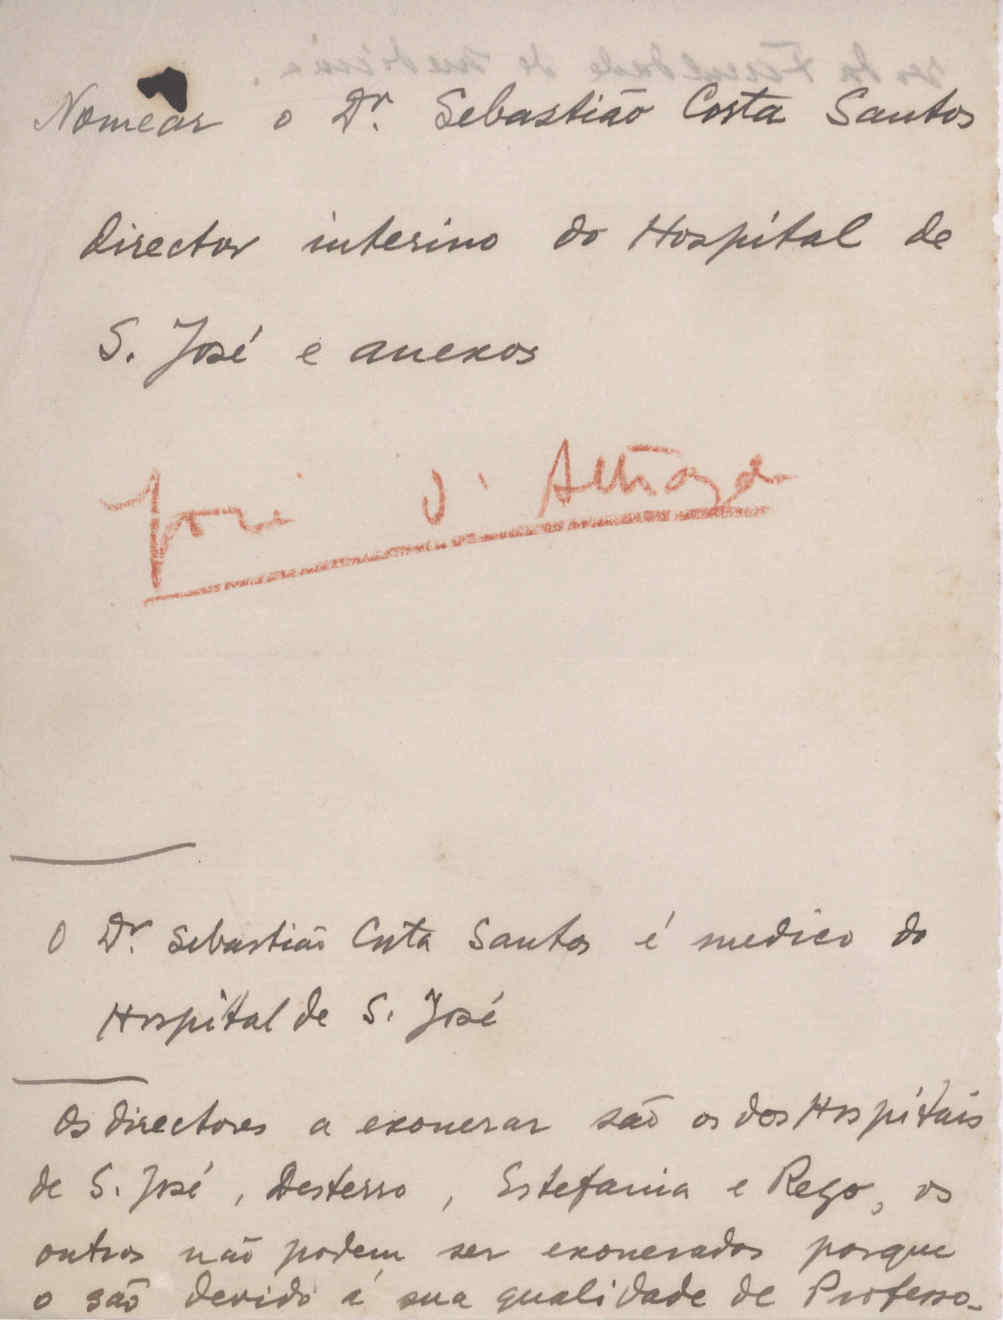 Nomear o Dr. Sebastião Costa Santos
director interino do Hospital de
S. José e anexos
José d'
O Dr. Sebastião Costa Santos é medico do
Hospital de S. José
Os directores a exonerar são os dos Hospitais
de S. José, Desterro, Estefania e Rego, os
outros não podem ser exonerados porque
o são devido á sua qualidade de Professo-